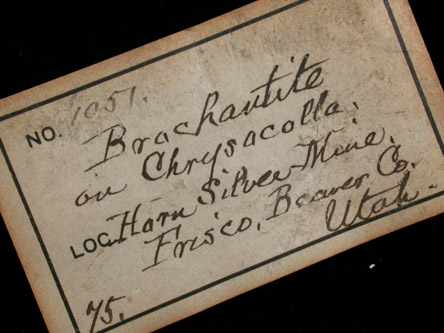 NO. 1051.
Brachantite
on Chrysacolla.
LOC. Horn Silver Mine.
Frisco, Beaver Co.
Utah.
75.